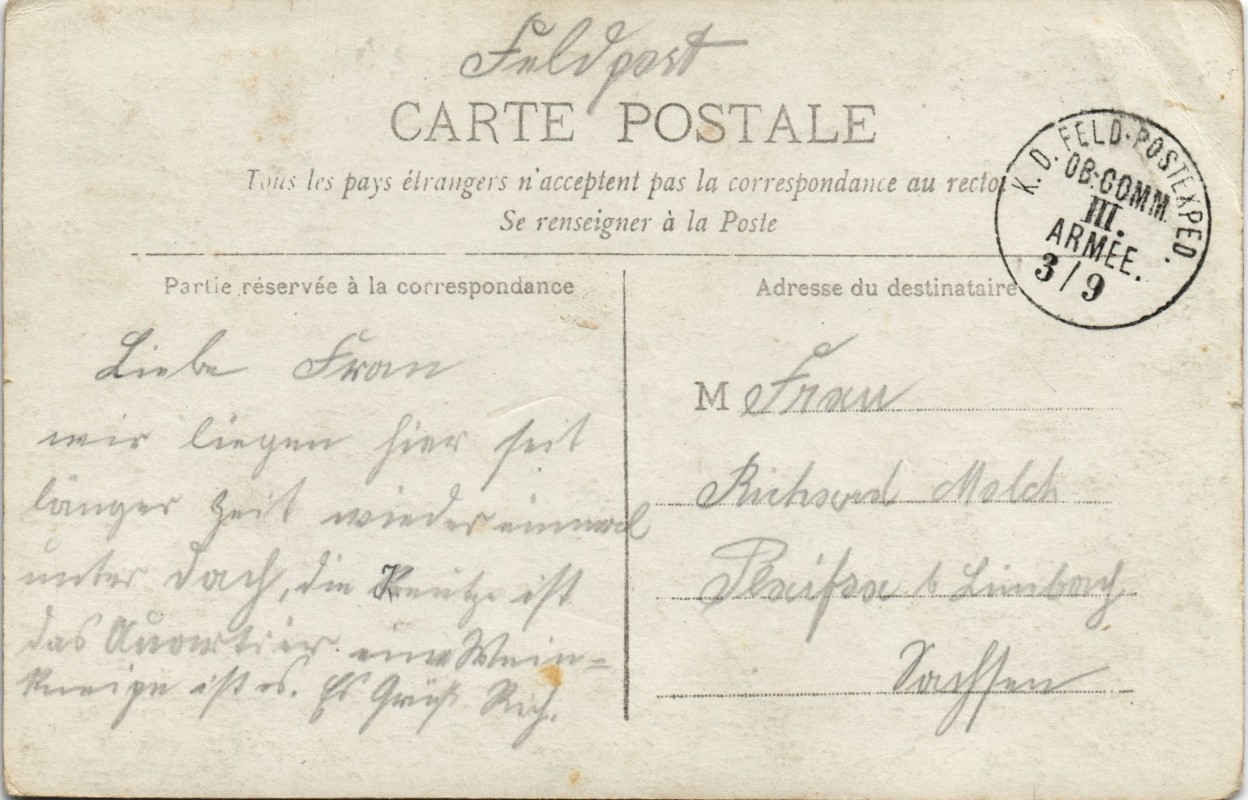 Feldpost
CARTE POSTALE
Tous les pays étrangers n'acceptent pas la correspondance au recto.
Se renseigner à la Poste
K. D. FELD-POSTEXPED.
OB-COMM.
III.
ARMEE.
3/9
Partie réservée à la correspondance
Liebe Frau
wir liegen hier seit
länger Zeit wieder einmal
unter Dach, die ist
das Quartier eine Wein=
kneipe ist es. Es Grüßt Rich.
Adresse du destinataire
M Frau
Richard Molch
Pleißa b Limbach
Sachsen